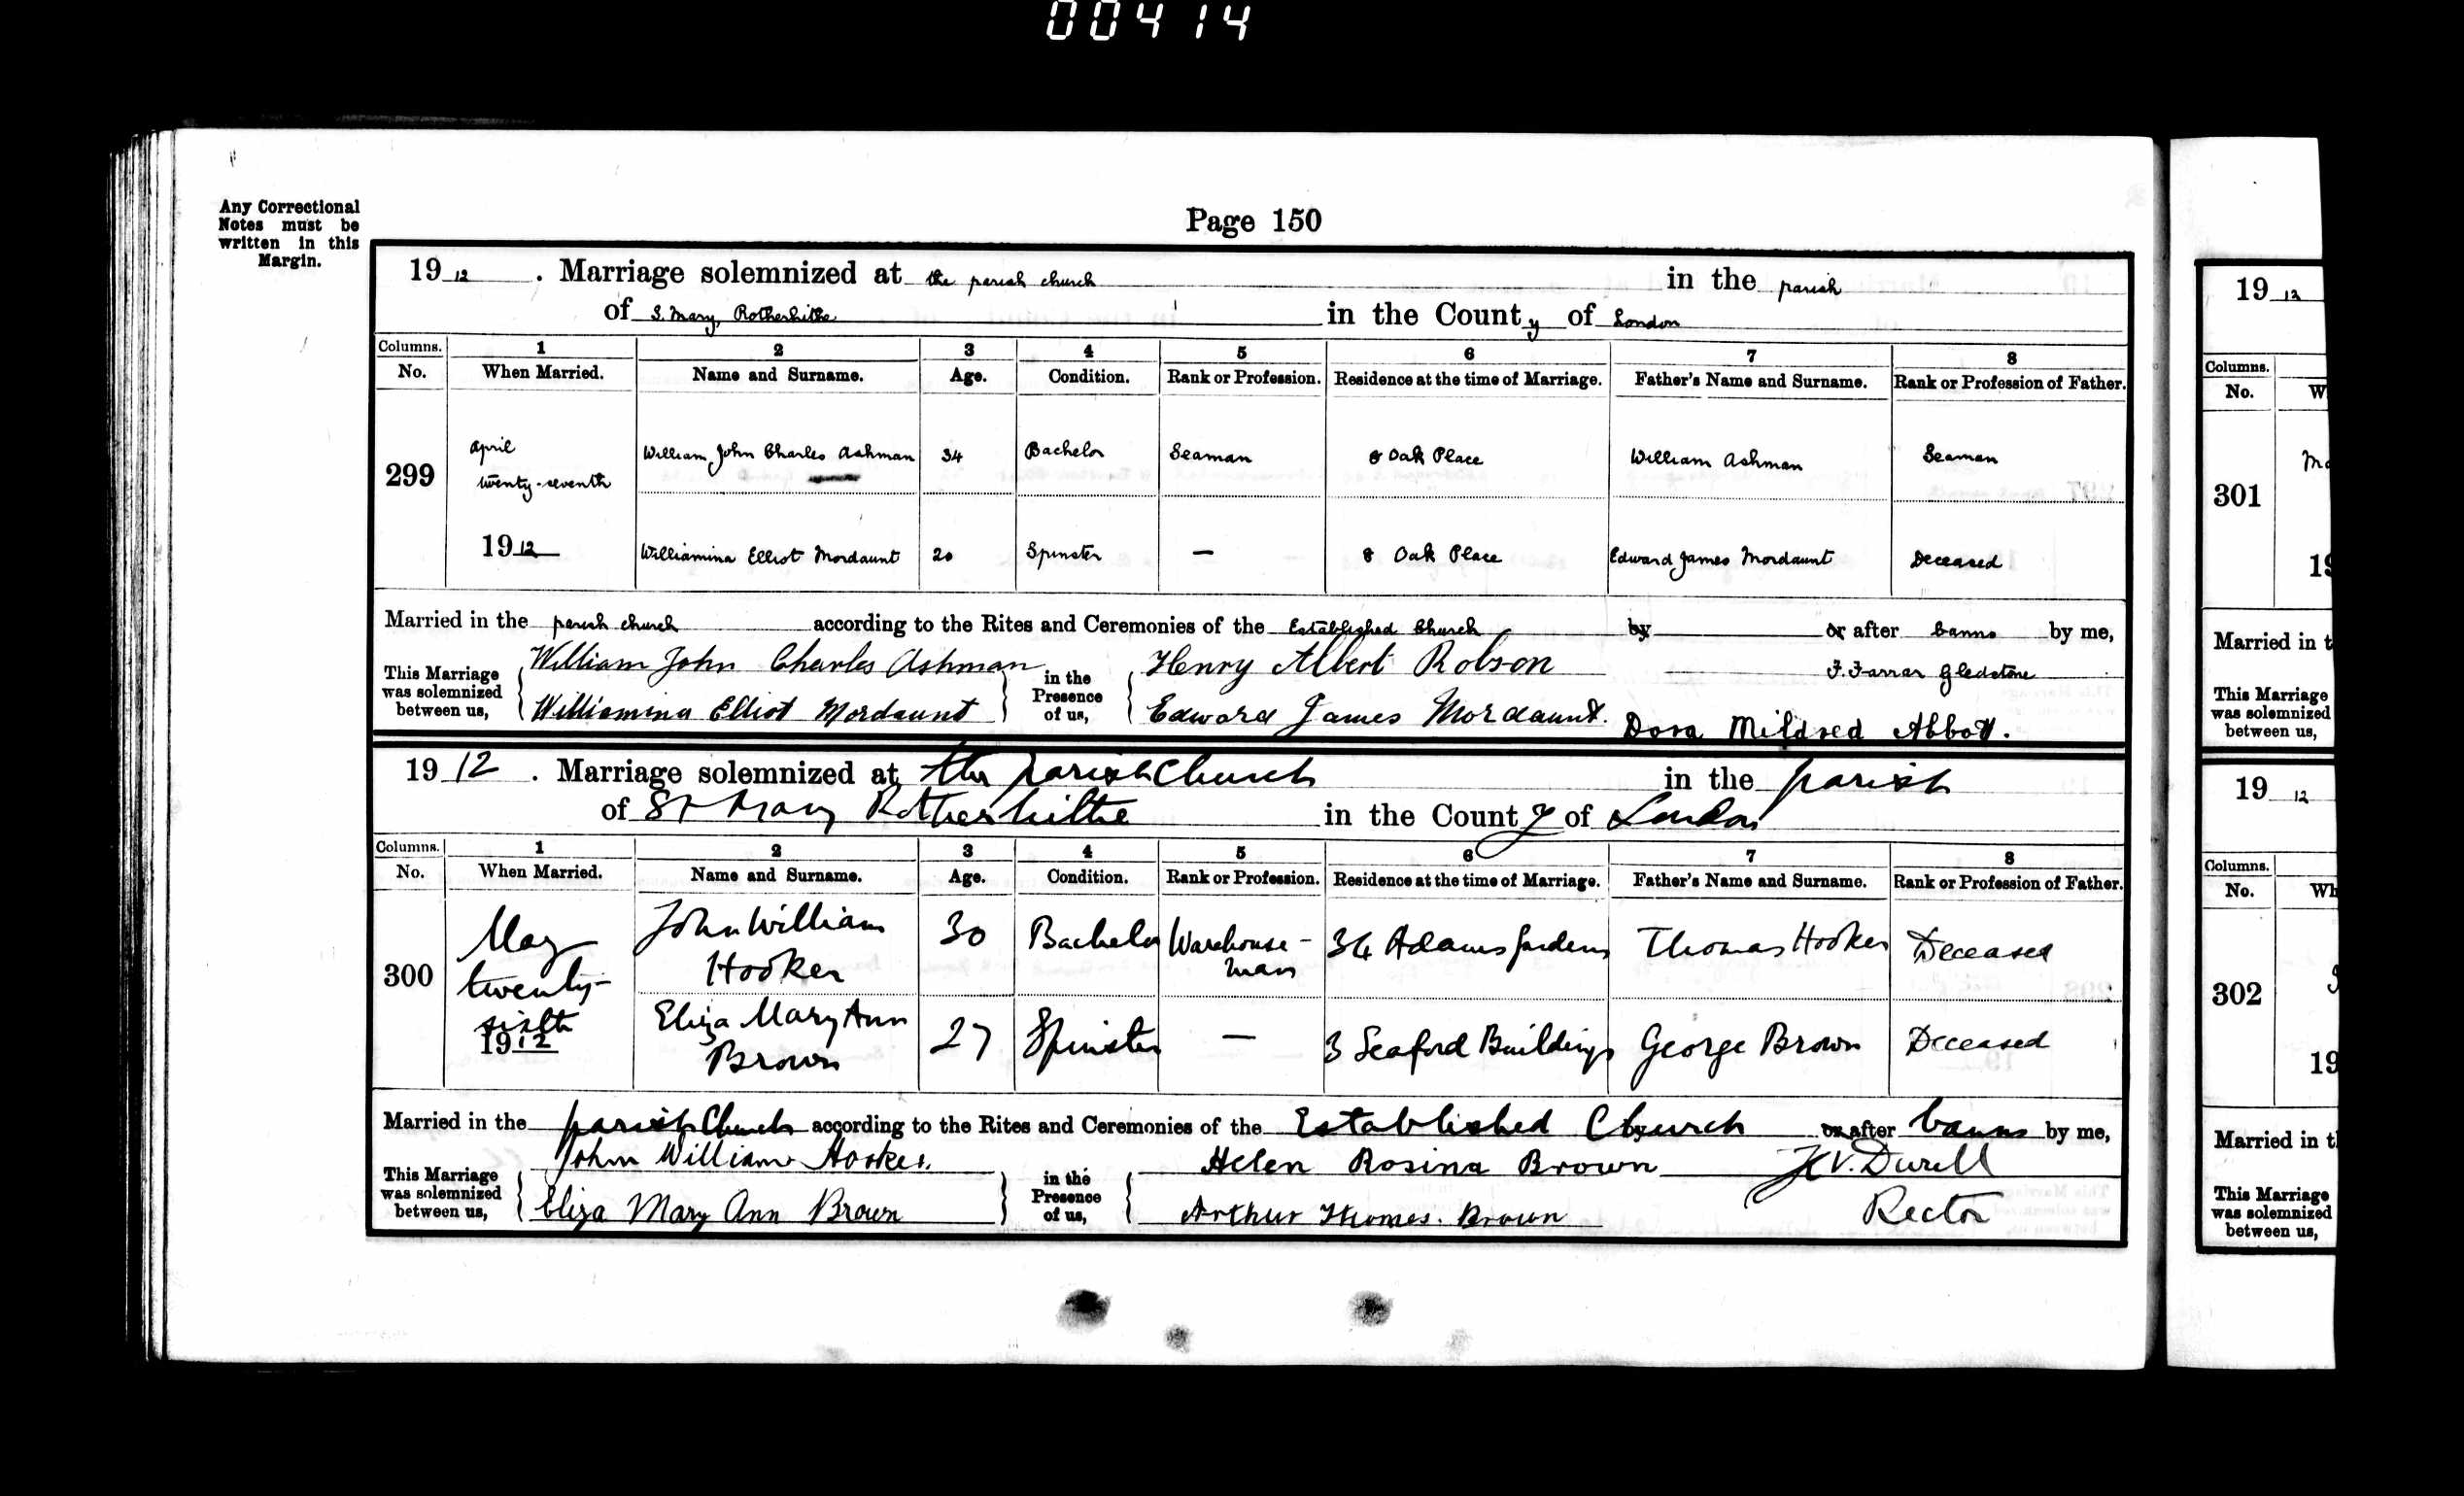 00414
Any Correctional
Notes must be
written in this
Margin.
Page 150
1912. Marriage solemnized at the parish church in the parish
of S. Mary, Rotherhithe in the County of London
Columns. 1 2 3 4 5 6 7 8
No. When Married. Name and Surname. Age. Condition. Rank or Profession. Residence at the time of Marriage. Father's Name and Surname. Rank or Profession of Father.
299 April twenty-seventh 1912 William John Charles Ashman 34 Bachelor Seaman 8 Oak Place William Ashman Seaman
Williamina Elliot Mordaunt 20 Spinster — 8 Oak Place Edward James Mordaunt Deceased
Married in the parish church according to the Rites and Ceremonies of the Established Church by or after banns by me,
This Marriage was solemnized between us, William John Charles Ashman in the Presence of us, Henry Albert Robson F. Farrar Gledstone
Williamina Elliot Mordaunt Edward James Mordaunt. Dora Mildred Abbott.
1912. Marriage solemnized at the parish Church in the parish
of St Mary Rotherhithe in the County of London
Columns. 1 2 3 4 5 6 7 8
No. When Married. Name and Surname. Age. Condition. Rank or Profession. Residence at the time of Marriage. Father's Name and Surname. Rank or Profession of Father.
300 May twenty-sixth 1912 John William Hooker 30 Bachelor Warehouse-man 34 Adams Gardens Thomas Hooker Deceased
Eliza Mary Ann Brown 27 Spinster — 3 Seaford Buildings George Brown Deceased
Married in the parish Church according to the Rites and Ceremonies of the Established Church by or after banns by me,
This Marriage was solemnized between us, John William Hooker. in the Presence of us, Helen Rosina Brown Durell
Eliza Mary Ann Brown Arthur Thomas. Brown Rector
1912
Columns.
No.
301
19
Married in
This Marriage
was solemnized
between us,
1912
Columns.
No.
302
19
Married in
This Marriage
was solemnized
between us,